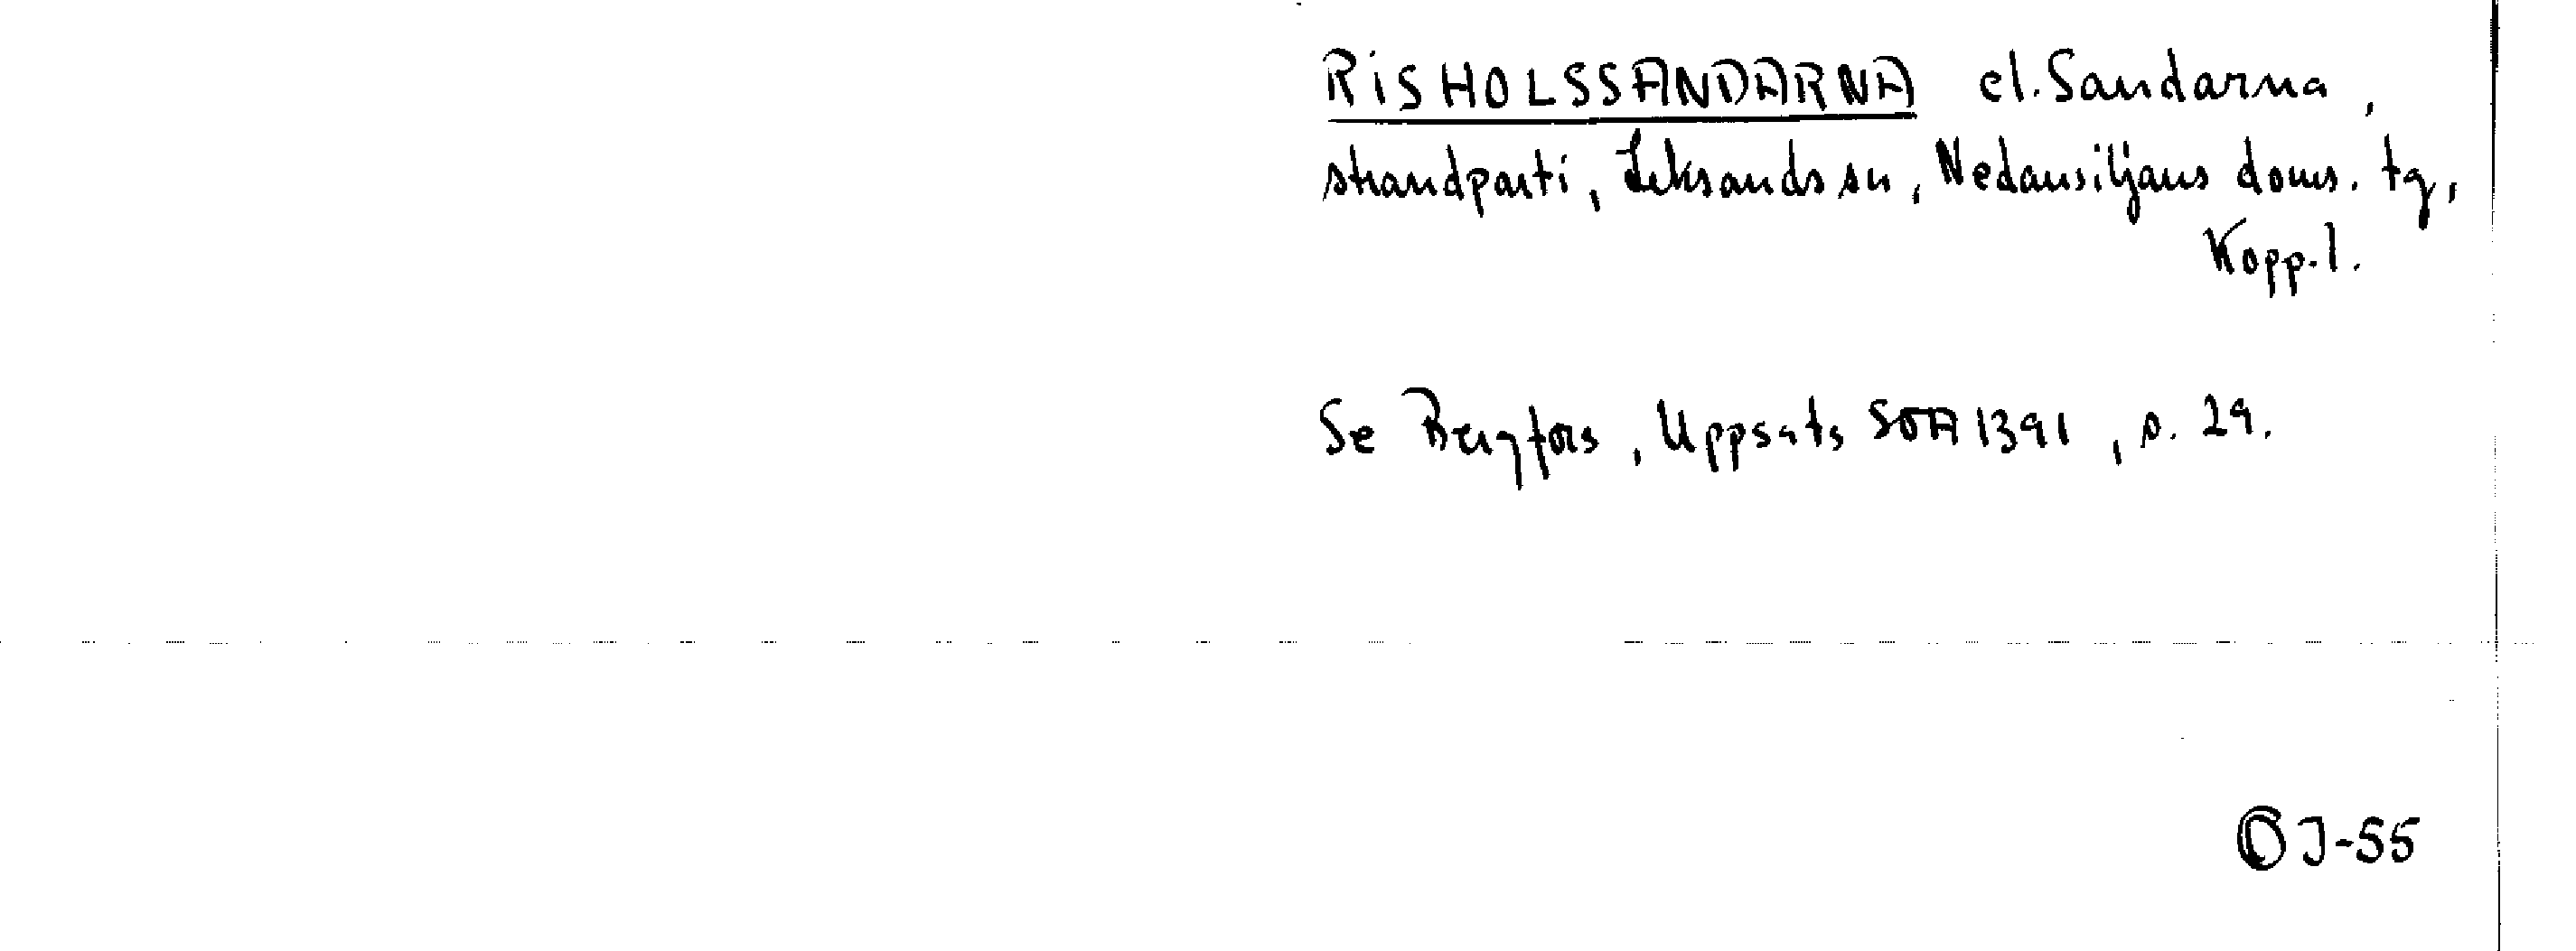 RISHOLSSANDARNA el. Sandarna,
strandparti, Leksands sn, Nedansiljans doms. tg,
Kopp. l.
Se Bergfors, Uppsats SOA 1391, s. 29.
OJ-55